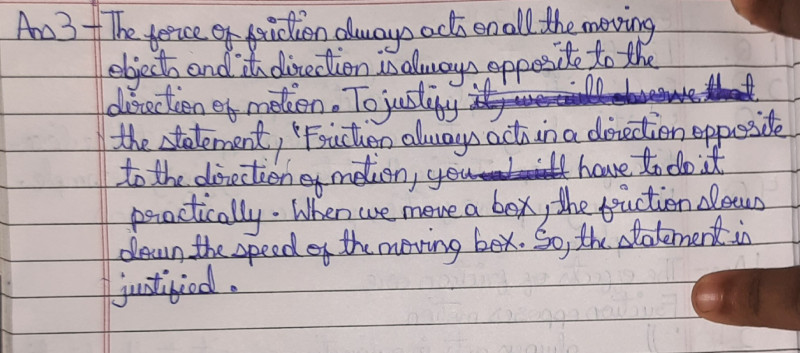 Ans 3 - The force of friction always acts on all the moving
objects and its direction is always opposite to the
direction of motion. To justify it, we will observe that
the statement, "Friction always acts in a direction opposite
to the direction of motion, you will have to do it
practically. When we move a box, the friction slows
down the speed of the moving box. So, the statement is
justified.